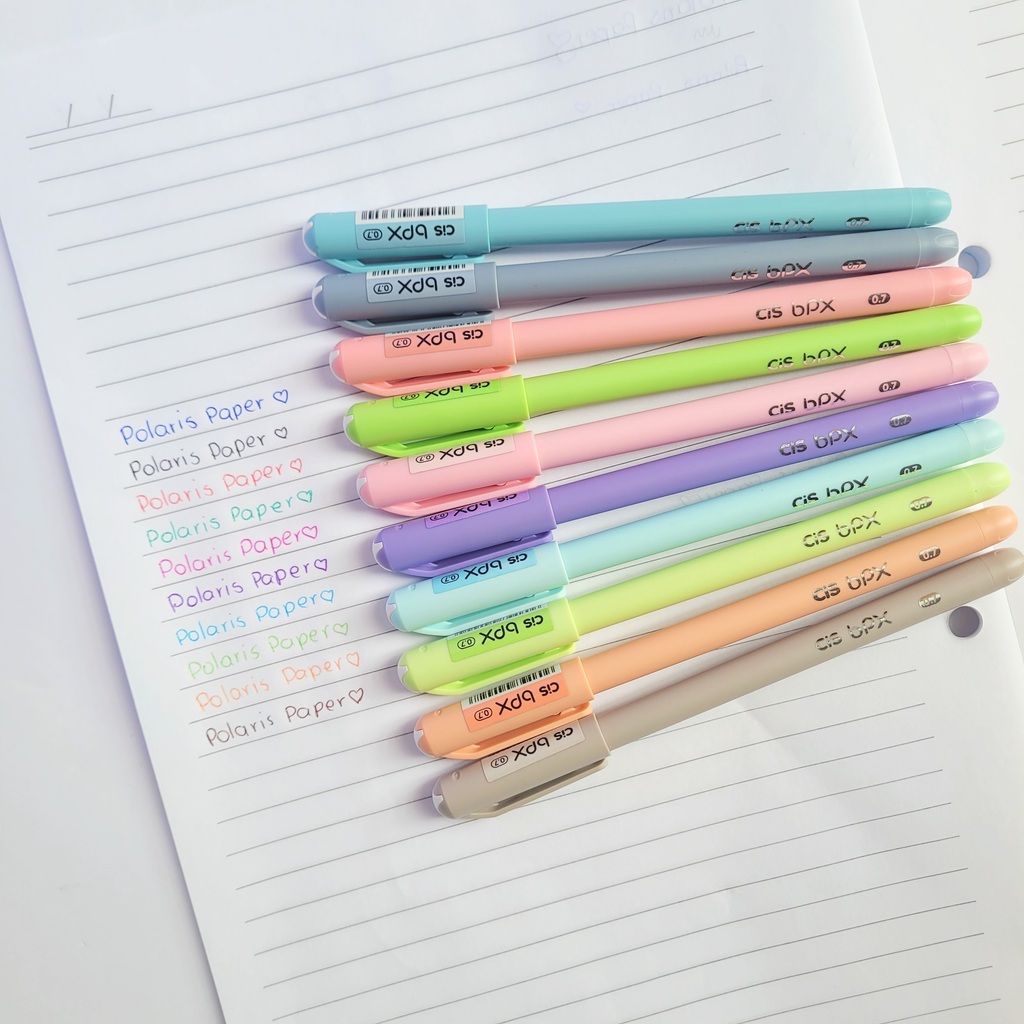 Polaris Paper ♡
Polaris Paper ♡
Polaris Paper ♡
Polaris Paper ♡
Polaris Paper ♡
Polaris Paper ♡
Polaris Paper ♡
Polaris Paper ♡
Polaris Paper ♡
Polaris Paper ♡
cis bpx 0.7
cis bpx 0.7
cis bpx 0.7
cis bpx 0.7
cis bpx 0.7
cis bpx 0.7
cis bpx 0.7
cis bpx 0.7
cis bpx 0.7
cis bpx 0.7
cis bpx 0.7
cis bpx 0.7
cis bpx 0.7
cis bpx
cis bpx 0.7
cis bpx
cis bpx 0.7
cis bpx 0.7
cis bpx 0.7
cis bpx 0.7